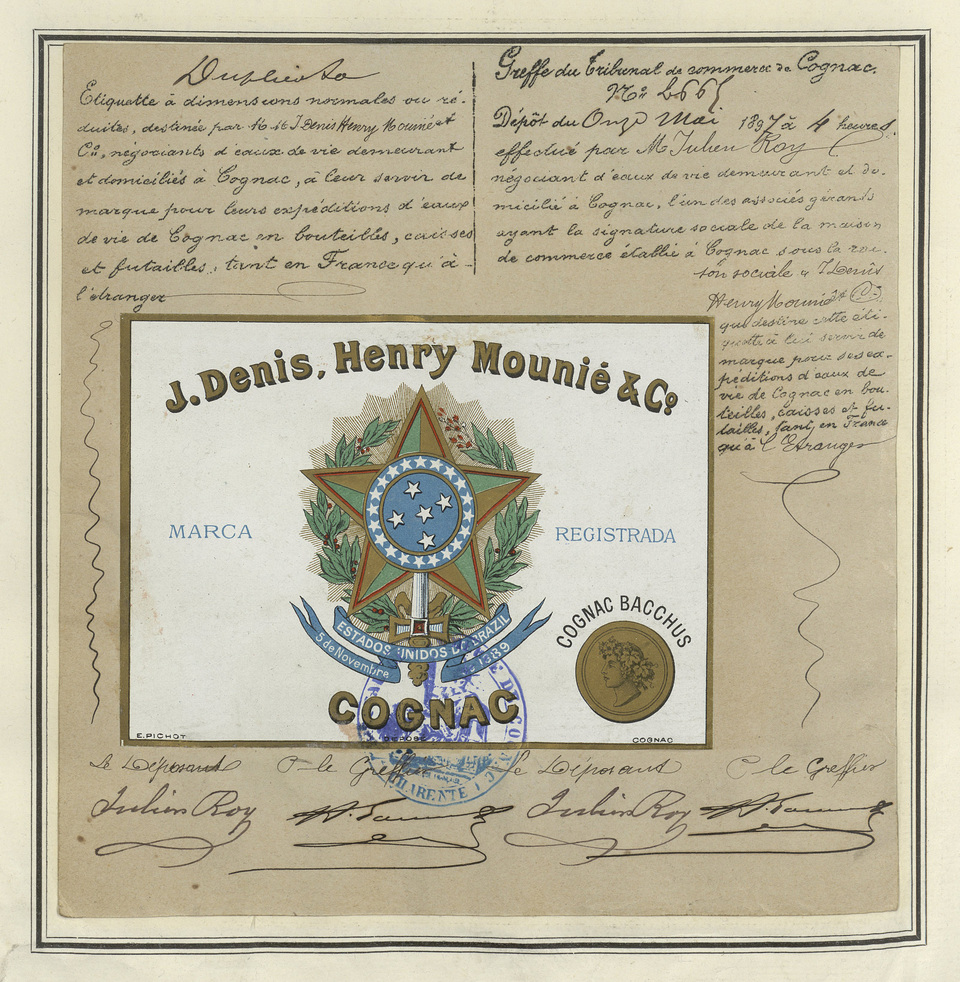 Duplicata
Etiquette à dimensions normales ou ré-
duites, destinée par M. M. J. Denis Henry Mounié et
Cie, négociants d'eaux de vie demeurant
et domiciliés à Cognac, à leur servir de
marque pour leurs expéditions d'eaux
de vie de Cognac en bouteilles, caisses
et futailles, tant en France qu'à
l'étranger
Greffe du Tribunal de commerce de Cognac.
No
Dépôt du Onze Mai 1897 à 4 heures
effectué par M Julien Roy
négociant d'eaux de vie demeurant et do-
micilié à Cognac, l'un des associés gérants
ayant la signature sociale de la maison
de commerce établie à Cognac sous la rai-
son sociale « J Denis
Henry Mounié & Cie
qui destine cette éti-
quette à lui servir de
marque pour ses ex-
péditions d'eaux de
vie de Cognac en bou-
teilles, caisses et fu-
tailles, tant en France
qu'à l'Etranger
J. Denis, Henry Mounié & Co
MARCA
REGISTRADA
ESTADOS UNIDOS DO BRAZIL
5 de Novembre 1889
COGNAC BACCHUS
COGNAC
E. PICHOT
COGNAC
CHARENTE
Le Déposant P le Greffier Le Déposant P le Greffier
Julien Roy Julien Roy